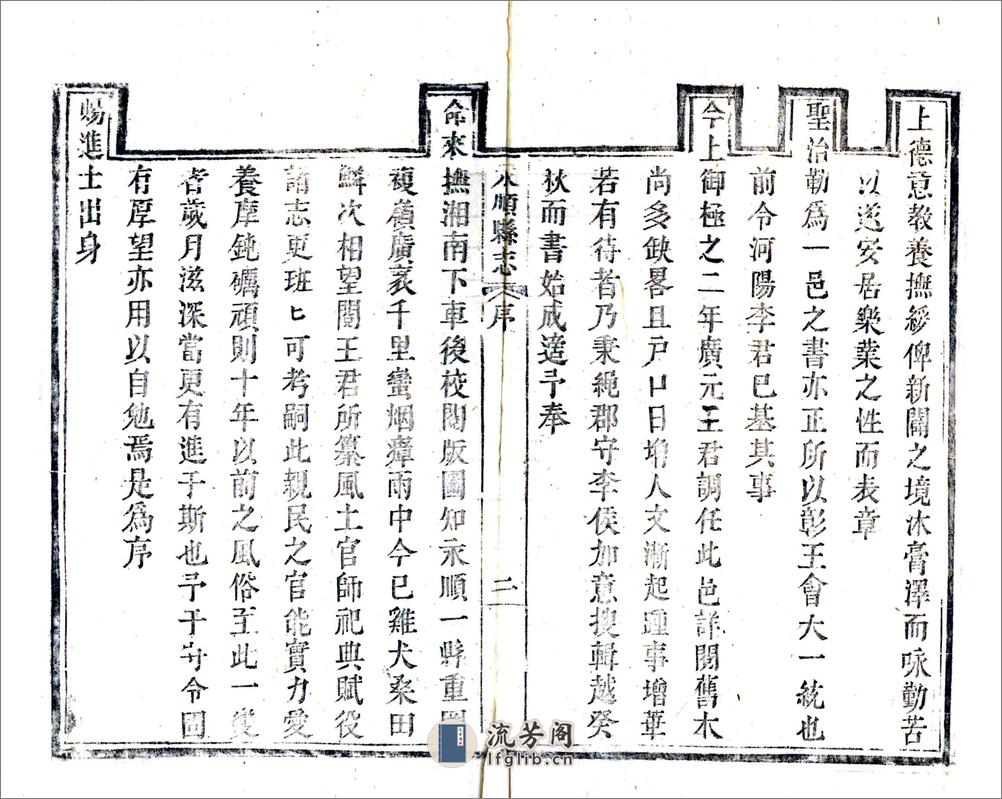 上德意教養撫綏俾新闢之境沐膏澤而咏勤苦
以遂安居樂業之性而表章
聖治勒爲一邑之書亦正所以彰王會大一統也
前令河陽李君已基其事
今上御極之二年廣元王君調任此邑詳閱舊本
尚多缺畧且戸口日增人文漸起踵事增華
若有待者乃秉繩郡守李侯加意搜輯越癸
秋而書始成適予奉
永順縣志 序 二
命來撫湘南下車後校閱版圖知永順一縣重岡
複嶺廣袤千里蠻烟瘴雨中今已雞犬桑田
鱗次相望閱王君所纂風土官師祀典賦役
諸志更班匕可考嗣此親民之官能實力愛
養摩鈍礪頑則十年以前之風俗至此一變
者歲月滋深當更有進于斯也予于守令固
有厚望亦用以自勉焉是爲序
賜進士出身
流芳阁
lfglib.cn